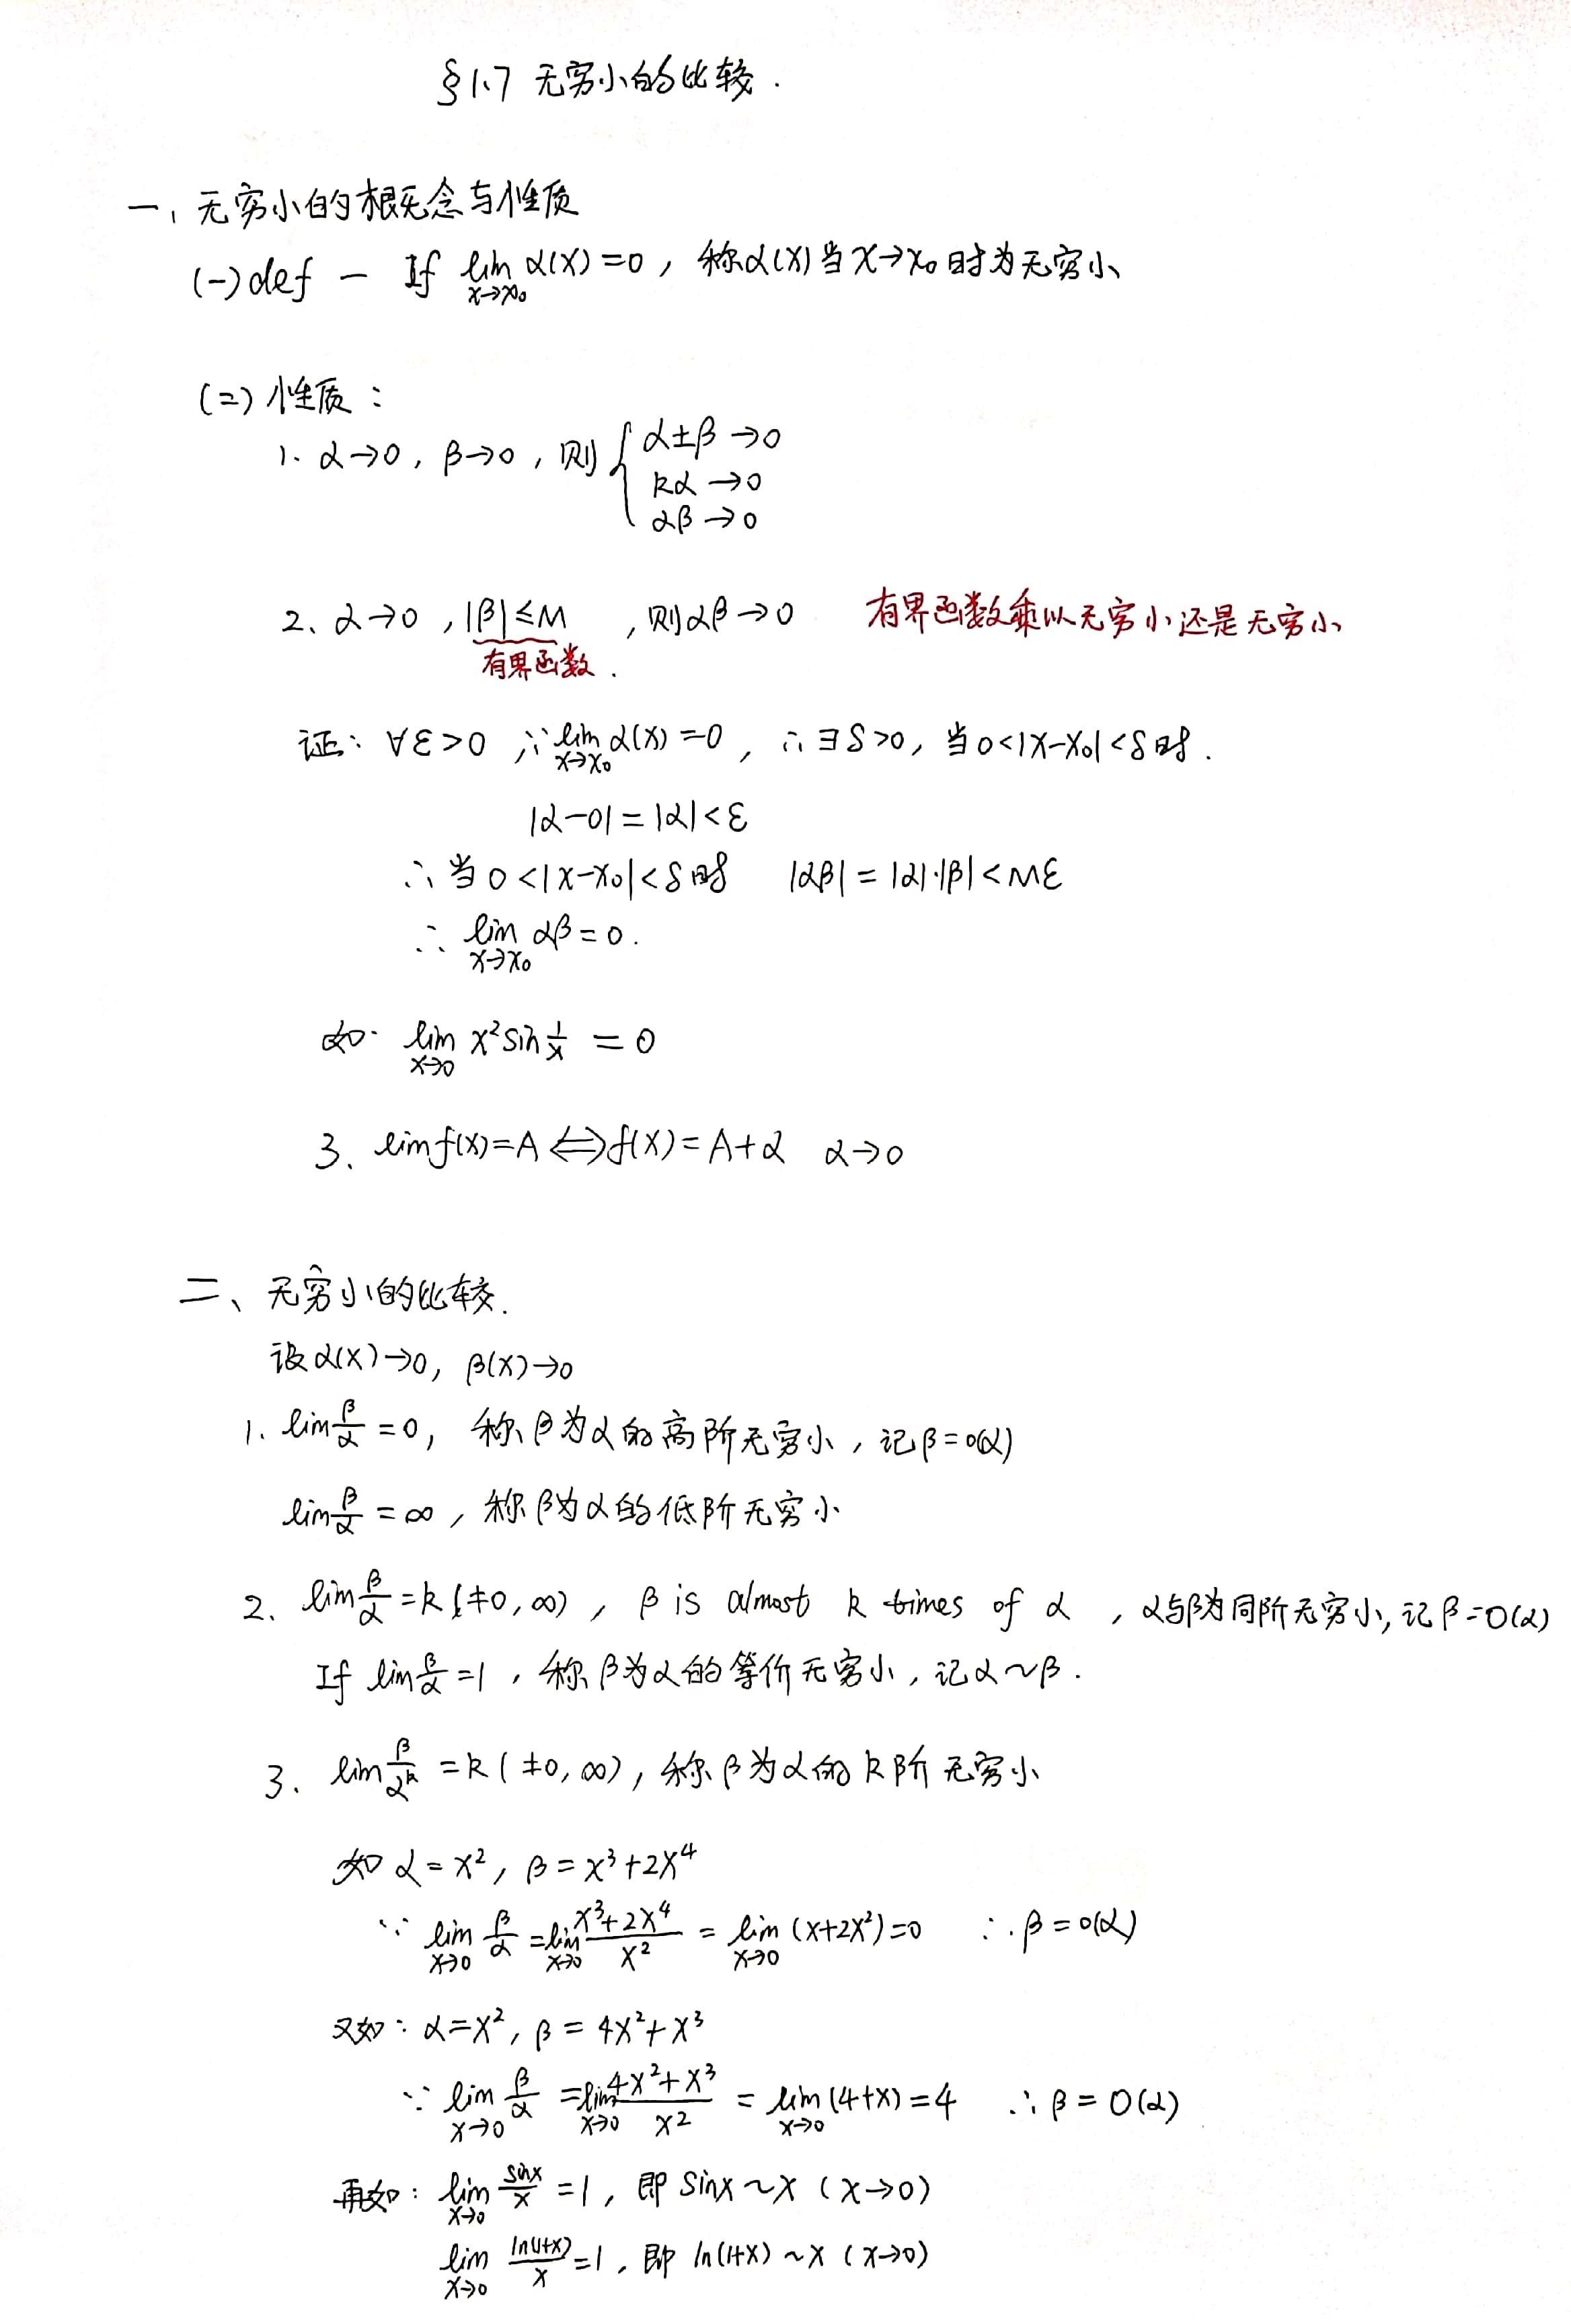 §1.7 无穷小的比较.
一、无穷小的概念与性质
(一) def — If lim_{x→x₀} α(x)=0, 称α(x)当x→x₀时为无穷小
(二) 性质:
1. α→0, β→0, 则 { α±β→0
kα→0
αβ→0
2、α→0, |β|≤M, 则αβ→0 有界函数乘以无穷小还是无穷小
有界函数.
证: ∀ε>0 ∵ lim_{x→x₀} α(x)=0, ∴ ∃δ>0, 当0<|x-x₀|<δ时.
|α-0|=|α|<ε
∴ 当0<|x-x₀|<δ时 |αβ|=|α|·|β|<Mε
∴ lim_{x→x₀} αβ=0.
如. lim_{x→0} x² sin 1/x = 0
3、lim f(x)=A ⟺ f(x)=A+α α→0
二、无穷小的比较.
设α(x)→0, β(x)→0
1. lim β/α =0, 称β为α的高阶无穷小, 记β=o(α)
lim β/α =∞, 称β为α的低阶无穷小
2、lim β/α =k (≠0,∞), β is almost k times of α, α与β为同阶无穷小, 记β=O(α)
If lim β/α =1, 称β为α的等价无穷小, 记α~β.
3、lim β/α^k =k (≠0,∞), 称β为α的k阶无穷小
如α=x², β=x³+2x⁴
∵ lim_{x→0} β/α = lim_{x→0} (x³+2x⁴)/x² = lim_{x→0} (x+2x²)=0 ∴ β=o(α)
又如: α=x², β=4x²+x³
∵ lim_{x→0} β/α = lim_{x→0} (4x²+x³)/x² = lim_{x→0} (4+x)=4 ∴ β=O(α)
再如: lim_{x→0} sinx/x =1, 即 sinx~x (x→0)
lim_{x→0} ln(1+x)/x =1, 即 ln(1+x)~x (x→0)